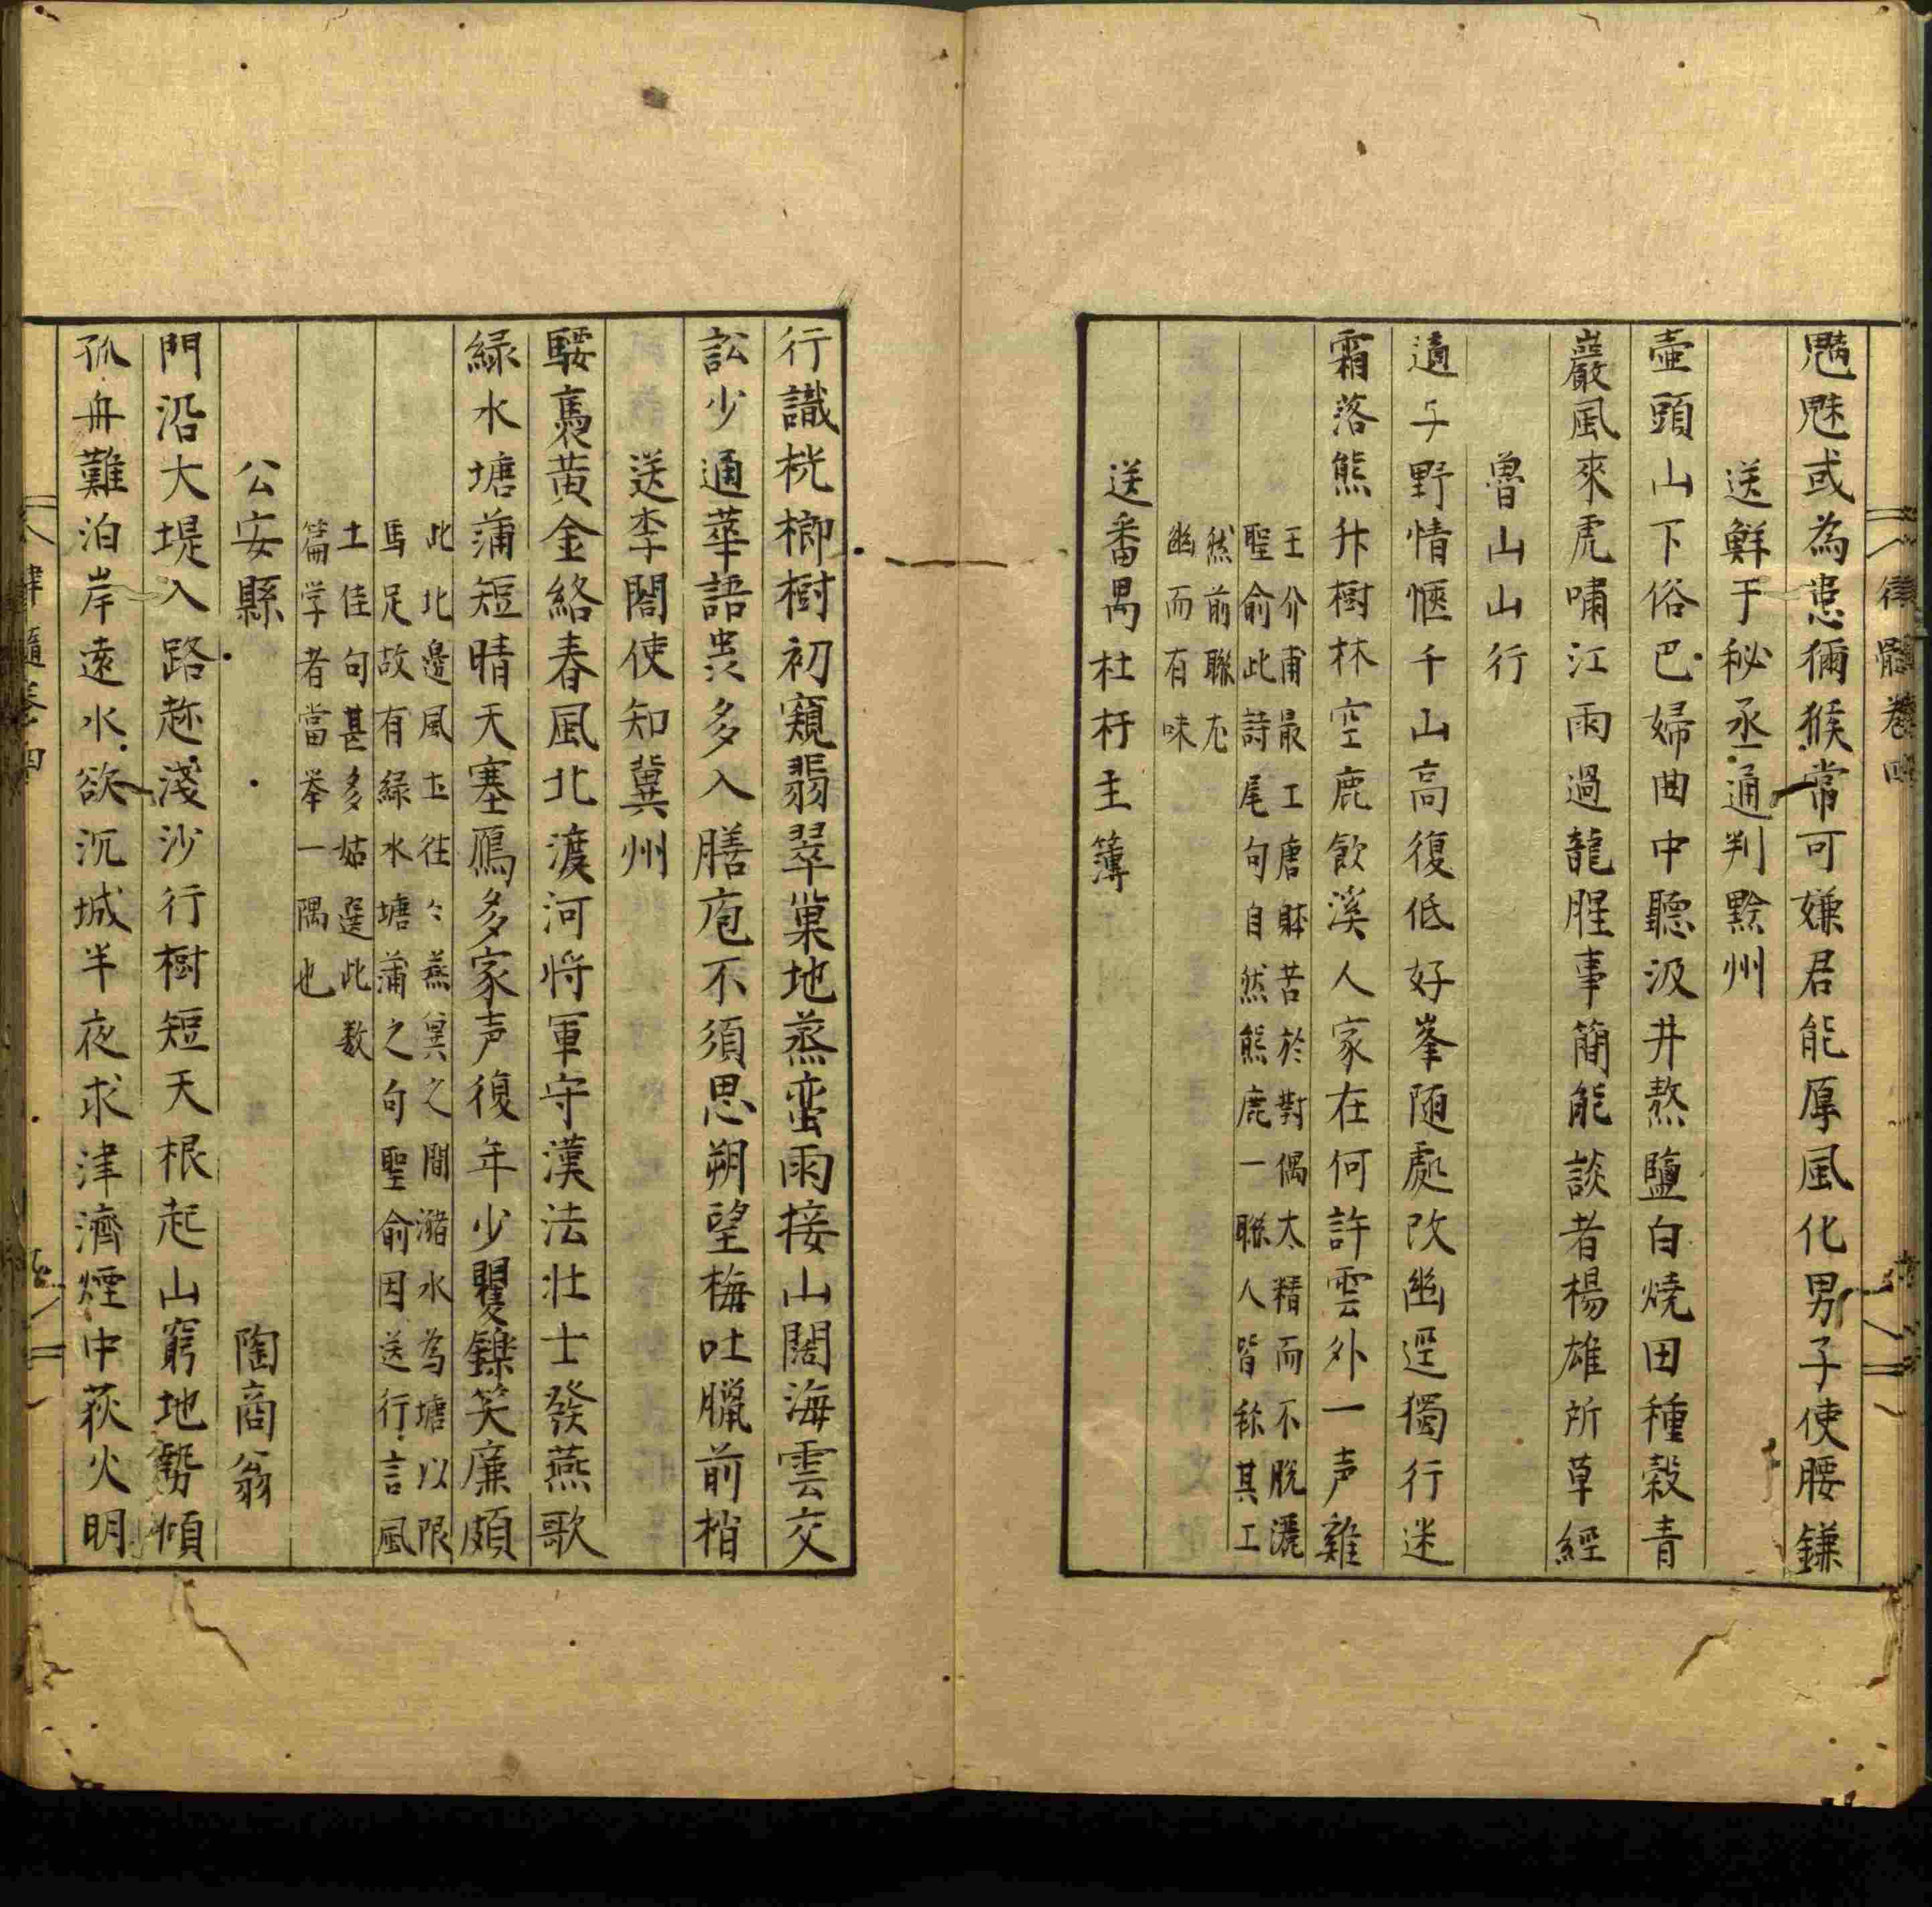 魑魅或為患獼猴常可嫌君能厚風化男子使腰鎌
送鮮于秘丞通判黔州
壺頭山下俗巴婦曲中聽汲井熬鹽白燒田種穀青
巖風來虎嘯江雨過龍腥事簡能談者楊雄所草經
魯山山行
適与野情愜千山高復低好峯随處改幽逕獨行迷
霜落熊升樹林空鹿飲溪人家在何許雲外一声雞
王介甫最工唐躰苦於對偶太精而不脫灑
聖俞此詩尾句自然熊鹿一聯人皆称其工
然前聯尤
幽而有味
送番禺杜杅主簿
行識桄榔樹初窺翡翠巢地蒸蛮雨接山闊海雲交
訟少通華語虫多入膳庖不須思朔望梅吐臘前梢
送李閤使知冀州
騕褭黄金絡春風北渡河将軍守漢法壮士發燕歌
緑水塘蒲短晴天塞鴈多家声復年少矍鑠笑廉頗
此北邊風土往々燕冀之間瀦水為塘以限
馬足故有緑水塘蒲之句聖俞因送行言風
土佳句甚多姑選此数
篇学者當举一隅也
公安縣 陶商翁
門沿大堤入路趂淺沙行樹短天根起山窮地勢傾
孤舟難泊岸逺水欲沉城半夜求津濟煙中荻火明
律髓卷四